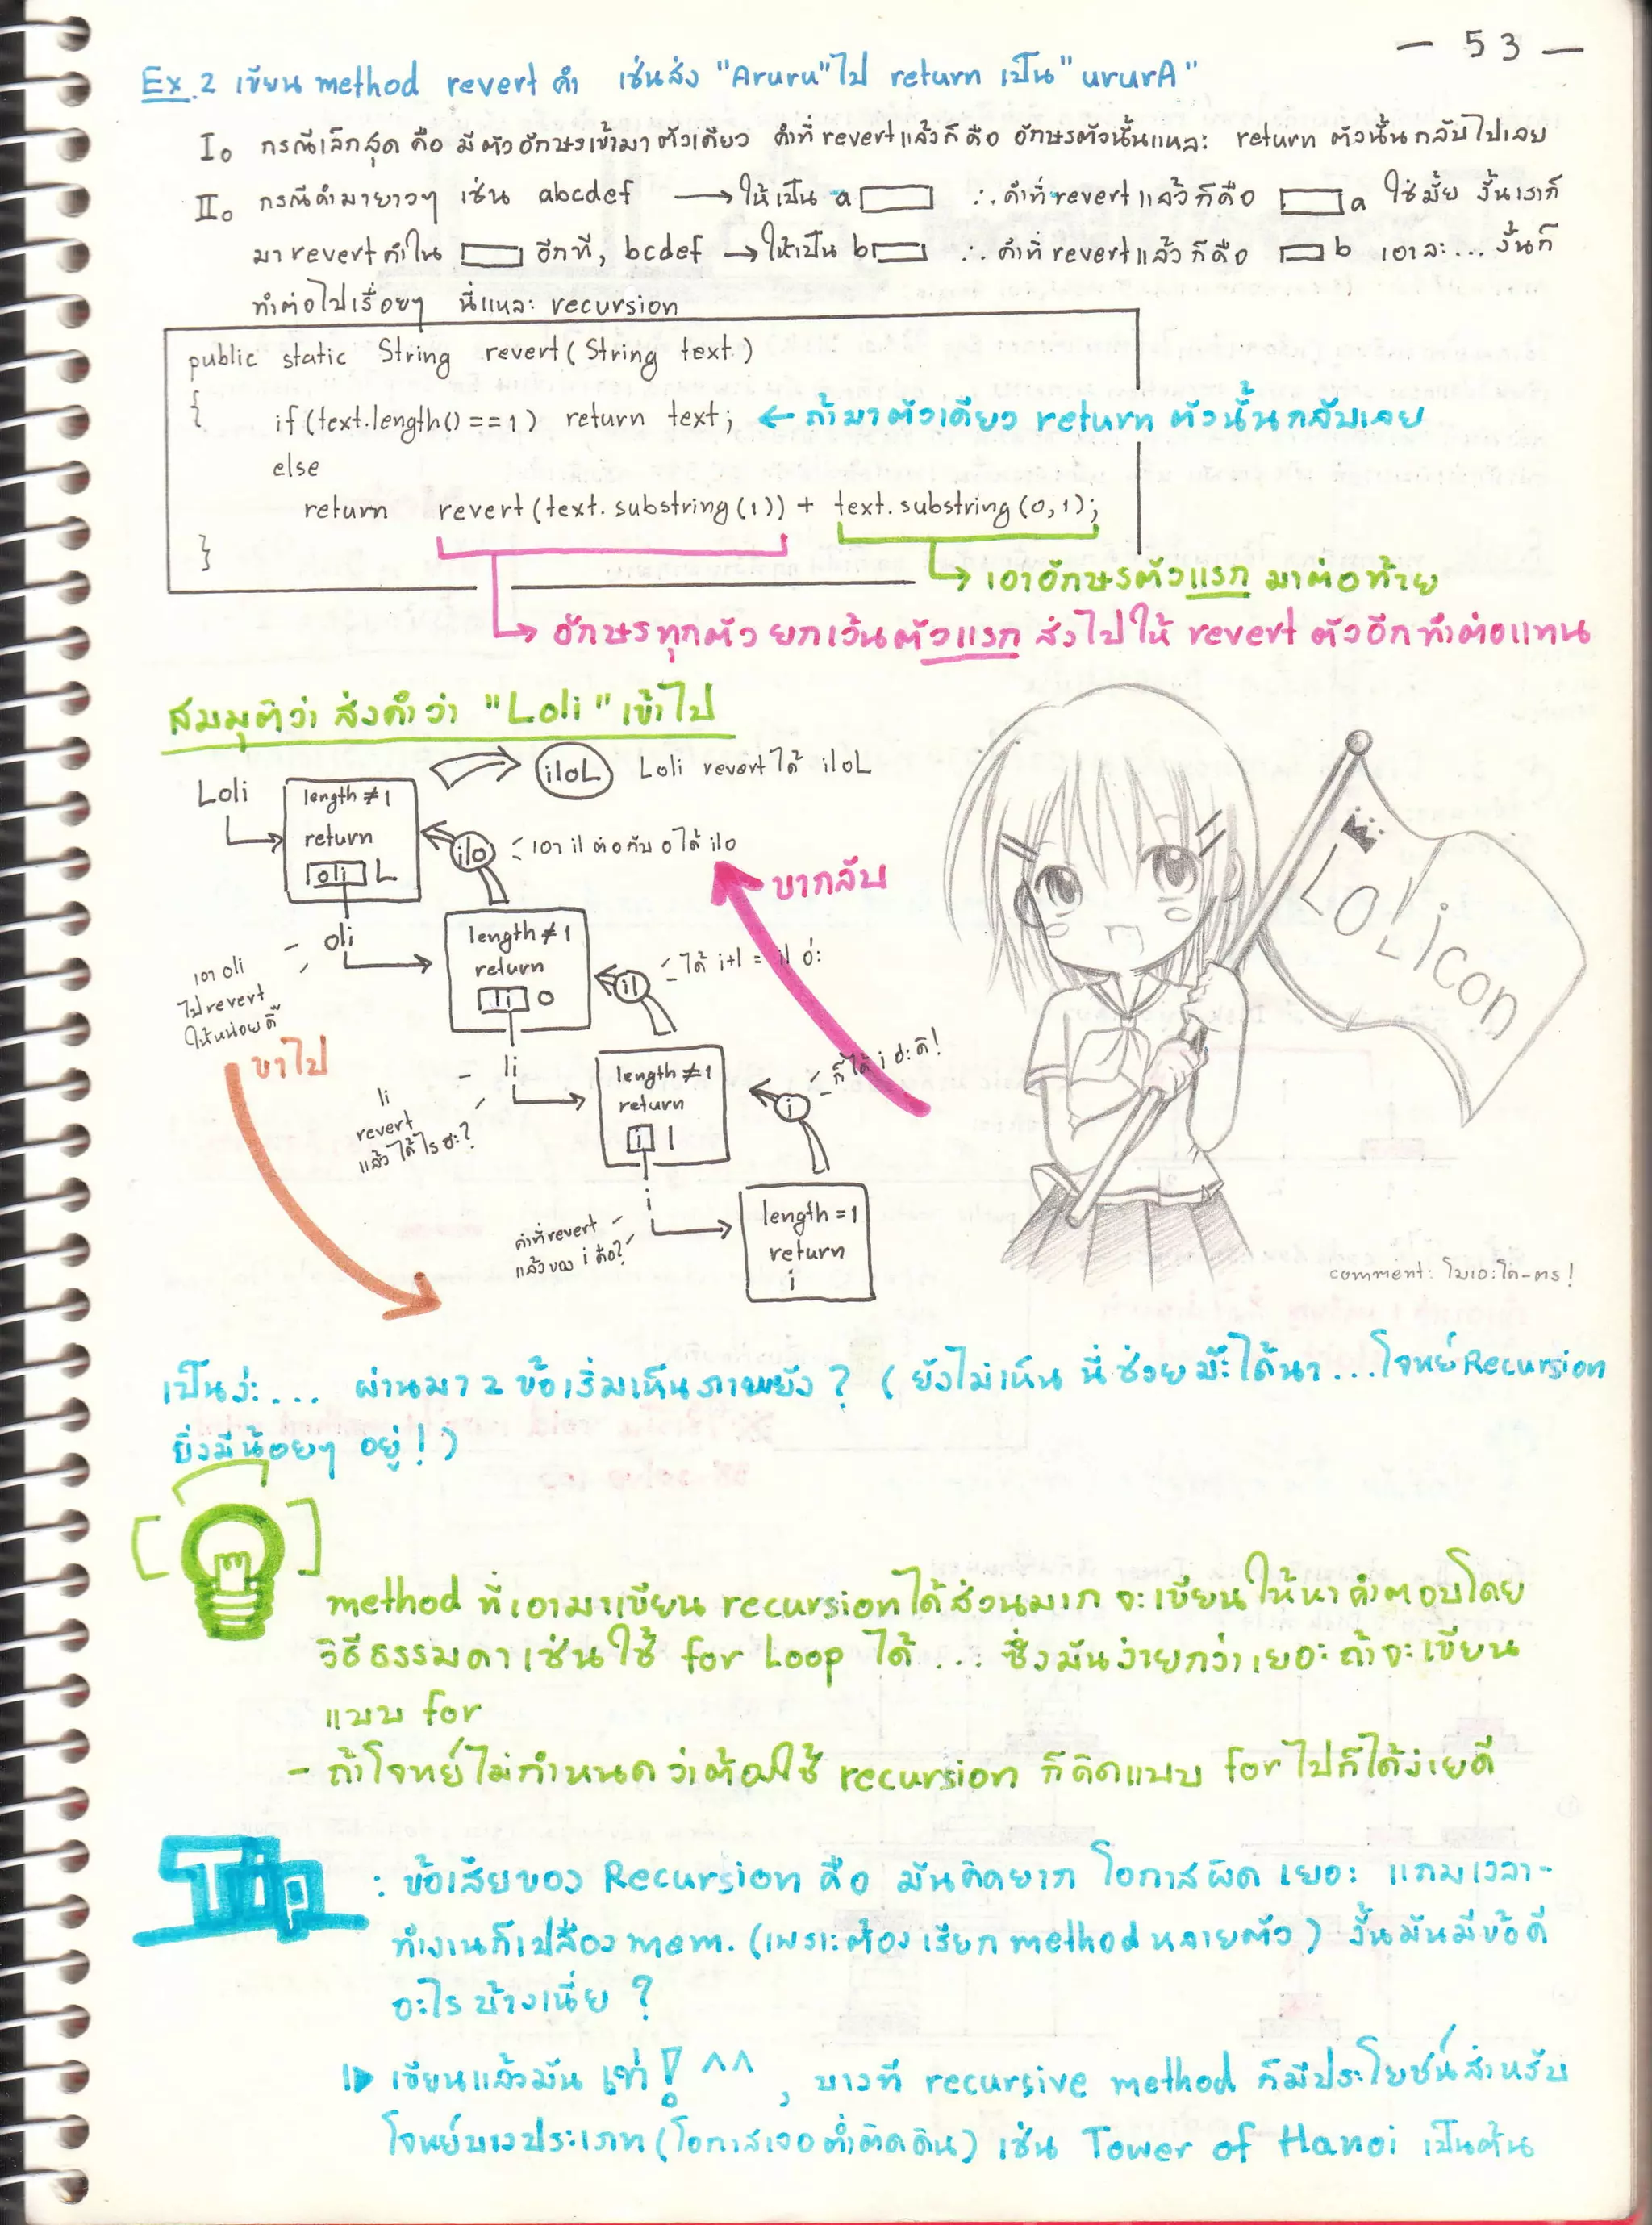 — 53 —
Ex.2 เขียน method revert คำ เช่นส่ง "Aruru" ไป return เป็น "ururA"
I. กรณีเล็กสุด คือ มีตัวอักษรเข้ามาตัวเดียว คำที่ revert แล้วก็คือ อักษรตัวนั้นแหละ return ตัวนั้นกลับไปเลย
II. กรณีคำมายาวๆ เช่น abcdef → ให้เป็น a ∴ คำที่ revert แล้วก็คือ a ใช่มั้ย งั้นเราก็
มา revert คำใน อีกที, bcdef → ให้เป็น b ∴ คำที่ revert แล้วก็คือ b เอาละ... งั้นก็
ทำต่อไปเรื่อยๆ นี่แหละ recursion
public static String revert(String text)
{ if(text.length()==1) return text; ← ถ้ามาตัวเดียว return ตัวนั้นกลับเลย
else
return revert(text.substring(1)) + text.substring(0,1);
}
เอาอักษรตัวแรกมาต่อท้าย
อักษรทุกตัวยกเว้นตัวแรก ส่งไปให้ revert ตัวอีกทำต่อแทน
สมมุติว่า ส่งคำว่า "Loli" เข้าไป
iloL Loli revert ได้ iloL
Loli
length ≠ 1
return
oli L
ilo เอา il ต่อกับ o ได้ ilo
ขากลับ
oli
เอา oli
ไป revert
ให้หน่อยดิ๊
length ≠ 1
return
li o
il ได้ i+l = il อ่ะ
ขาไป
li
li
revert
แล้วได้ไรฮะ?
length ≠ 1
return
i l
i ก็ได้ i อะดิ!
i
คำที่ revert
แล้วของ i คือ?
length = 1
return
i
LOLicon
comment: โมเอะโค-ตร!
เป็นง่ะ... ผ่านมา 2 ข้อเริ่มเห็นภาพยัง? (ยังไม่เห็น นี่ซ่วยม๊ะได้นา...โจทย์ Recursion
ยิ่งมีน้อยๆ อยู่!)
method ที่เอามาเขียน recursion ได้ส่วนมาก จะเขียนให้หาคำตอบโดย
วิธีธรรมดา เช่นใช้ for Loop ได้... ซึ่งมันง่ายกว่าเยอะถ้าจะเขียน
แบบ for
- ถ้าโจทย์ไม่กำหนดว่าต้องใช้ recursion ก็คิดแบบ for ไปก็ได้ง่ายดี
Tip : ข้อเสียของ Recursion คือ มันคิดยาก โอกาสผิดเยอะ แถมเวลา-
ทำงานก็เปลือง mem. (เพราะต้องเรียก method หลายตัว) งั้นมันมีข้อดี
อะไรบ้างเนี่ย ?
เขียนแล้วมัน เท่! ^^ , บางที recursive method ก็มีประโยชน์สำหรับ
โจทย์บางประเภท (โอกาสเจอต่ำติดดิน) เช่น Tower of Hanoi เป็นต้น